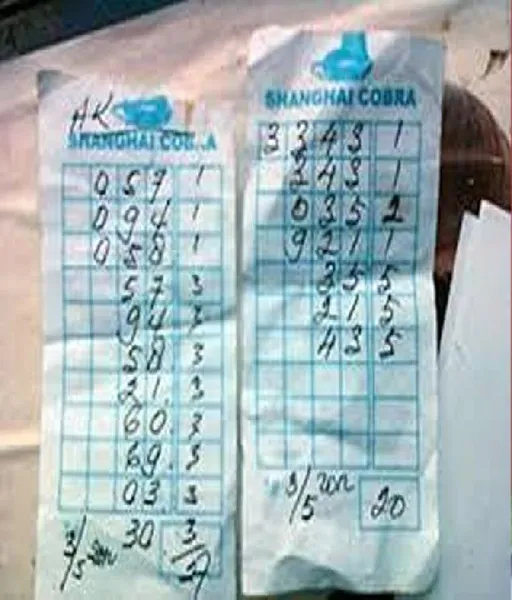 AK
SHANGHAI COBRA
0 5 7 1
0 9 4 1
0 5 8 1
5 7 3
9 4 3
5 8 3
2 1. 3
6 0. 3
6 9. 3
0 3. 3
30 3
SHANGHAI COBRA
3 3 4 3 1
3 4 3 1
0 3 5 2
9 2 1 1
3 5 5
2 1 5
4 3 5
3/5 20